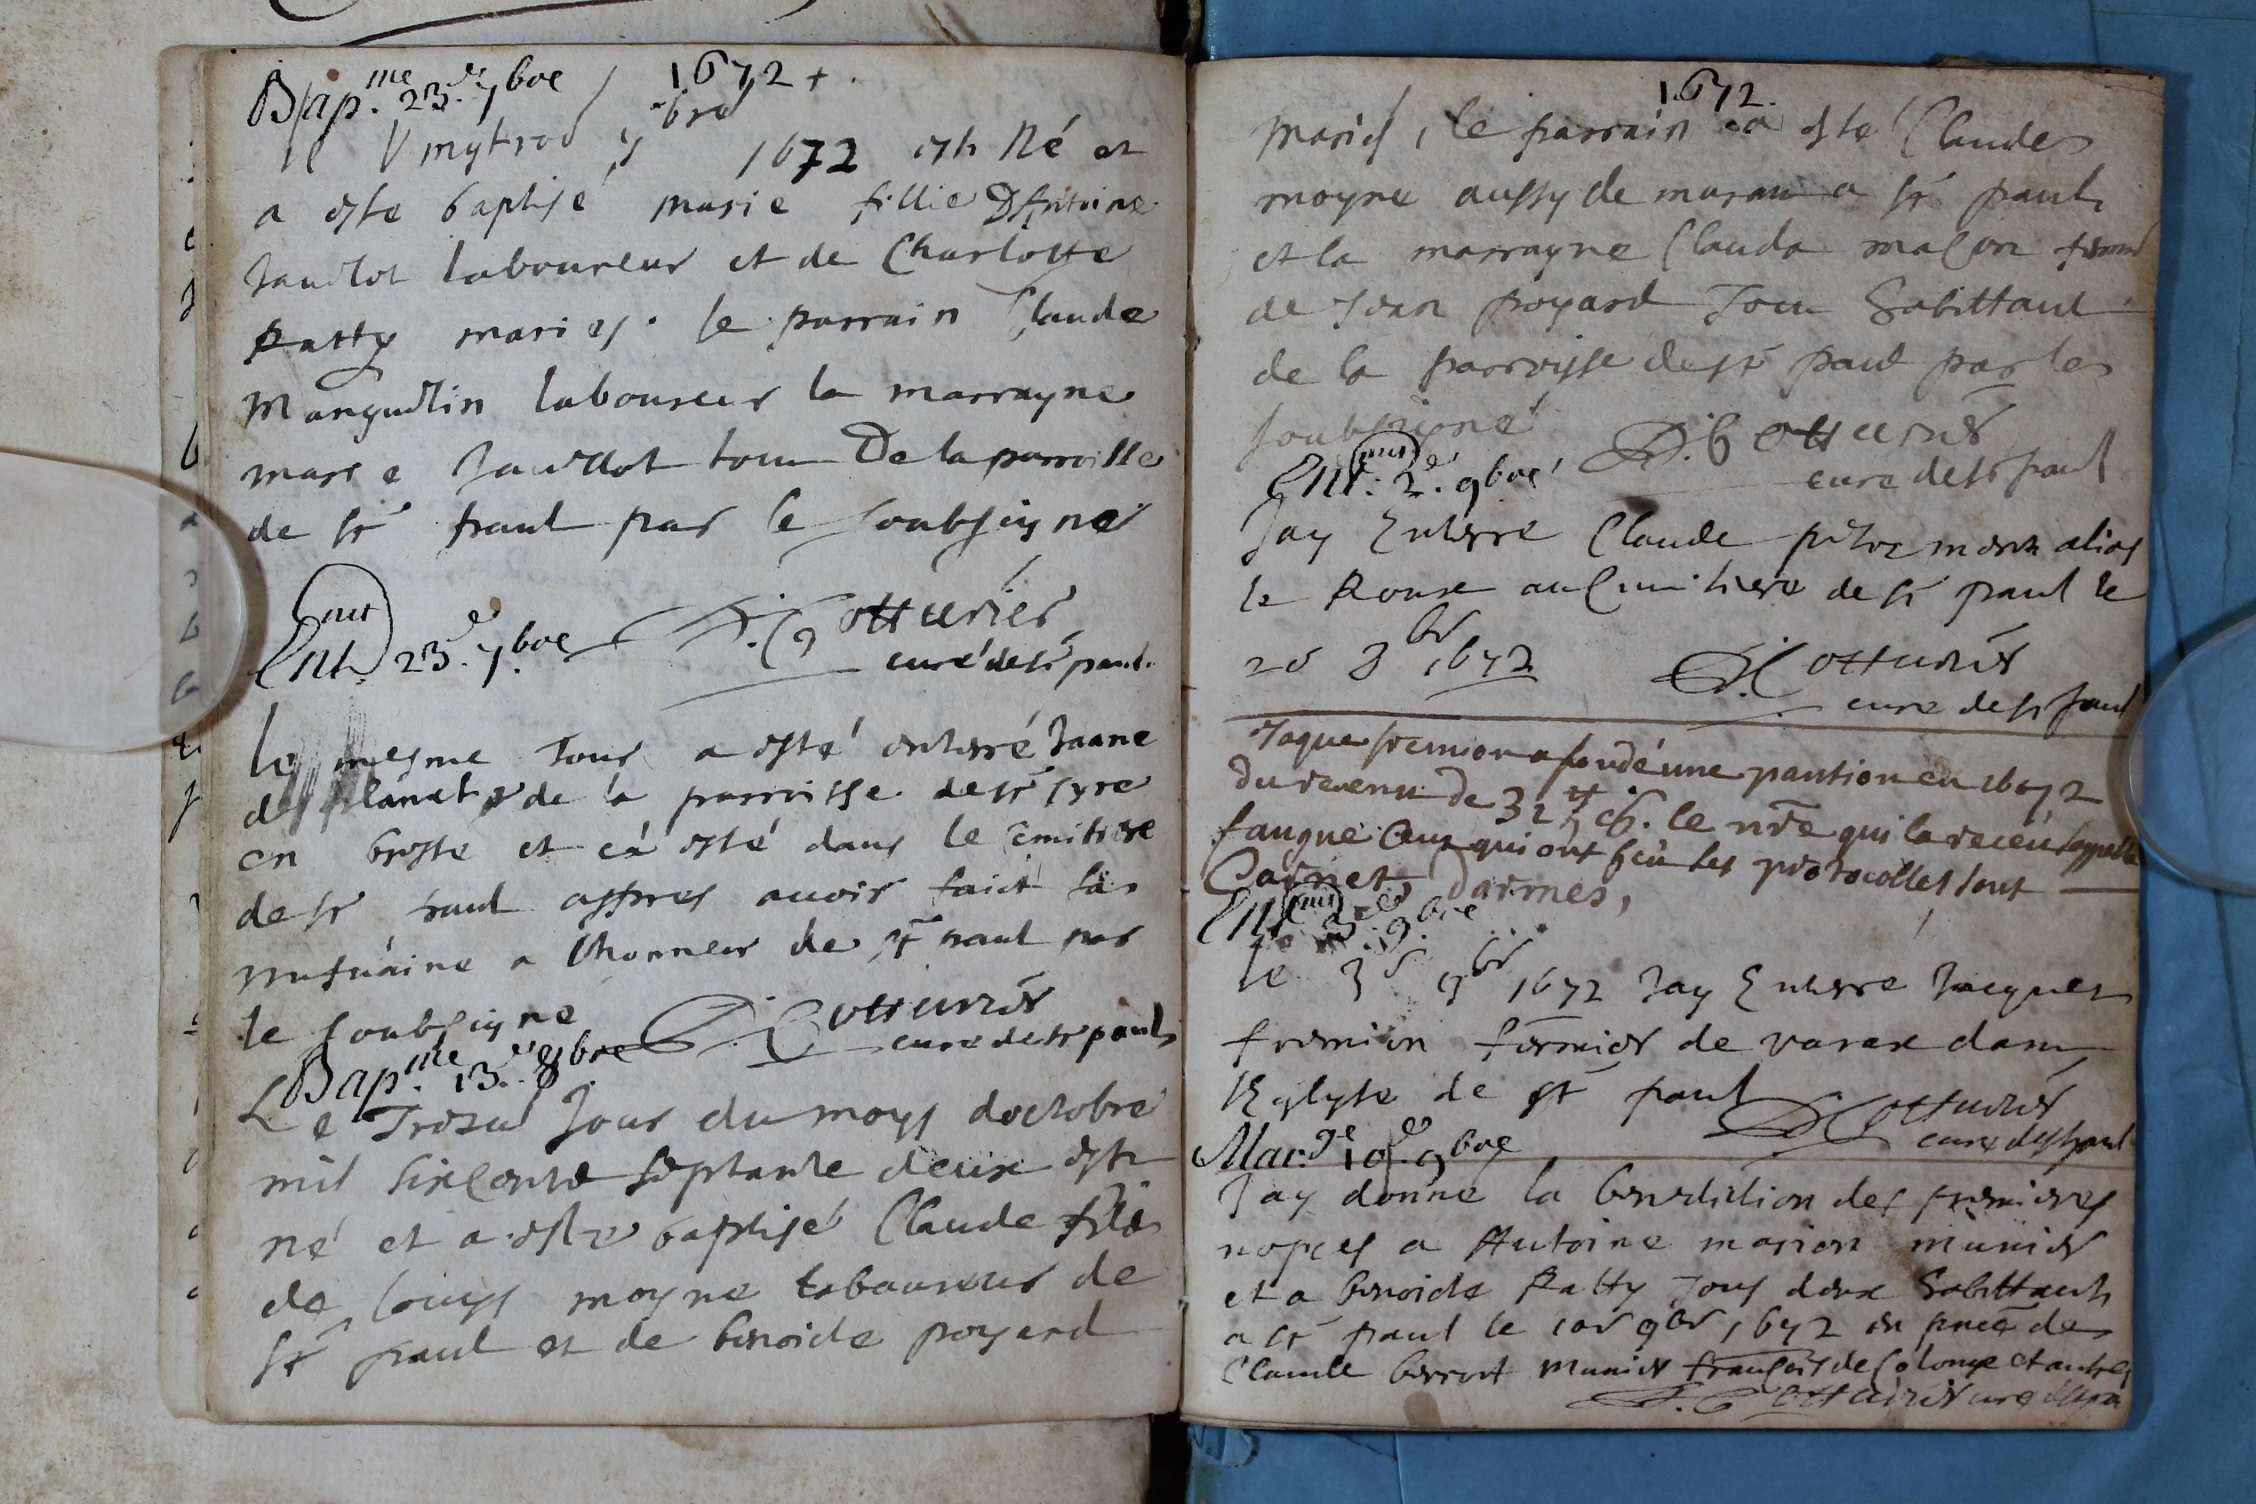 1672 +
Bap.me 23.e 7bre
le Vintroi 7bre 1672 est Né et
a este baptisé marie fillie D Antoine
Jandlot laboureur et de Charlotte
Ratty maries. le parrain Claude
Mangudlin laboureur la marrayne
marie Jandlot tous De la parroisse
de st paul par le soubsigné
Cotturier
curé de st paul.
Ent. 23.e 7.bre
le mesme Jour a esté enterré Jeane
de la parroisse de st Cyre
en breste et cà esté dans le cemitiere
de st paul appres avoir faict sa
nufvaine a lhonneur de st paul par
le soubsigne Cotturier
cure de st paul
Bap.me 13.e 8bre
Le Trezie Jour du moys doctobre
mil sixcente septante deux est
né et a este baptisé Claude filz
de louys moyne laboureur de
st paul et de benoide poyard
1672.
maries, le parrain a este Claude
moyne aussy de maran a st paul
et la marrayne Clauda maçon femme
de Jean poyard Tous habittant
de la parroisse de st paul par le
soubsigné Cotturier
cure de st paul
Ent. 2.e 9bre
Jay Enterre Claude alias
le Roux au Cimitiere de st paul le
8br 1672 Cotturier
cure de st paul
Jaque fremion a fondé une pantion en 1672
du revenu de 32 le nre qui la receu sappelle
faugue Ceux qui ont heu les protocolles sont
Carnet, Darmes,
Ent. 3.e 9.bre
le 3e 9br 1672 Jay Enterre Jacques
fremion fermier de varax dans
lEglyse de st paul Cotturier
cure de st paul
Mar.ge 10.e 9bre
Jay donné la benediction des premieres
nopces a Antoine marion munier
et a benoide Ratty Tous deux habittants
a st paul le 10e 9br 1672 en pnce de
Claude berrot munier françois de Colonge et autres
Cotturier cure